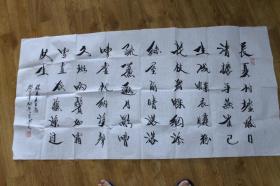 長夏村墟風日
清簷牙燕雀已
生成蝶衣曬粉
花枝舞蛛網添
絲屋角晴落落
疏簾邀月影嘈
嘈虛枕納溪聲
久斑兩鬢如霜
雪直欲漁樵過
此生